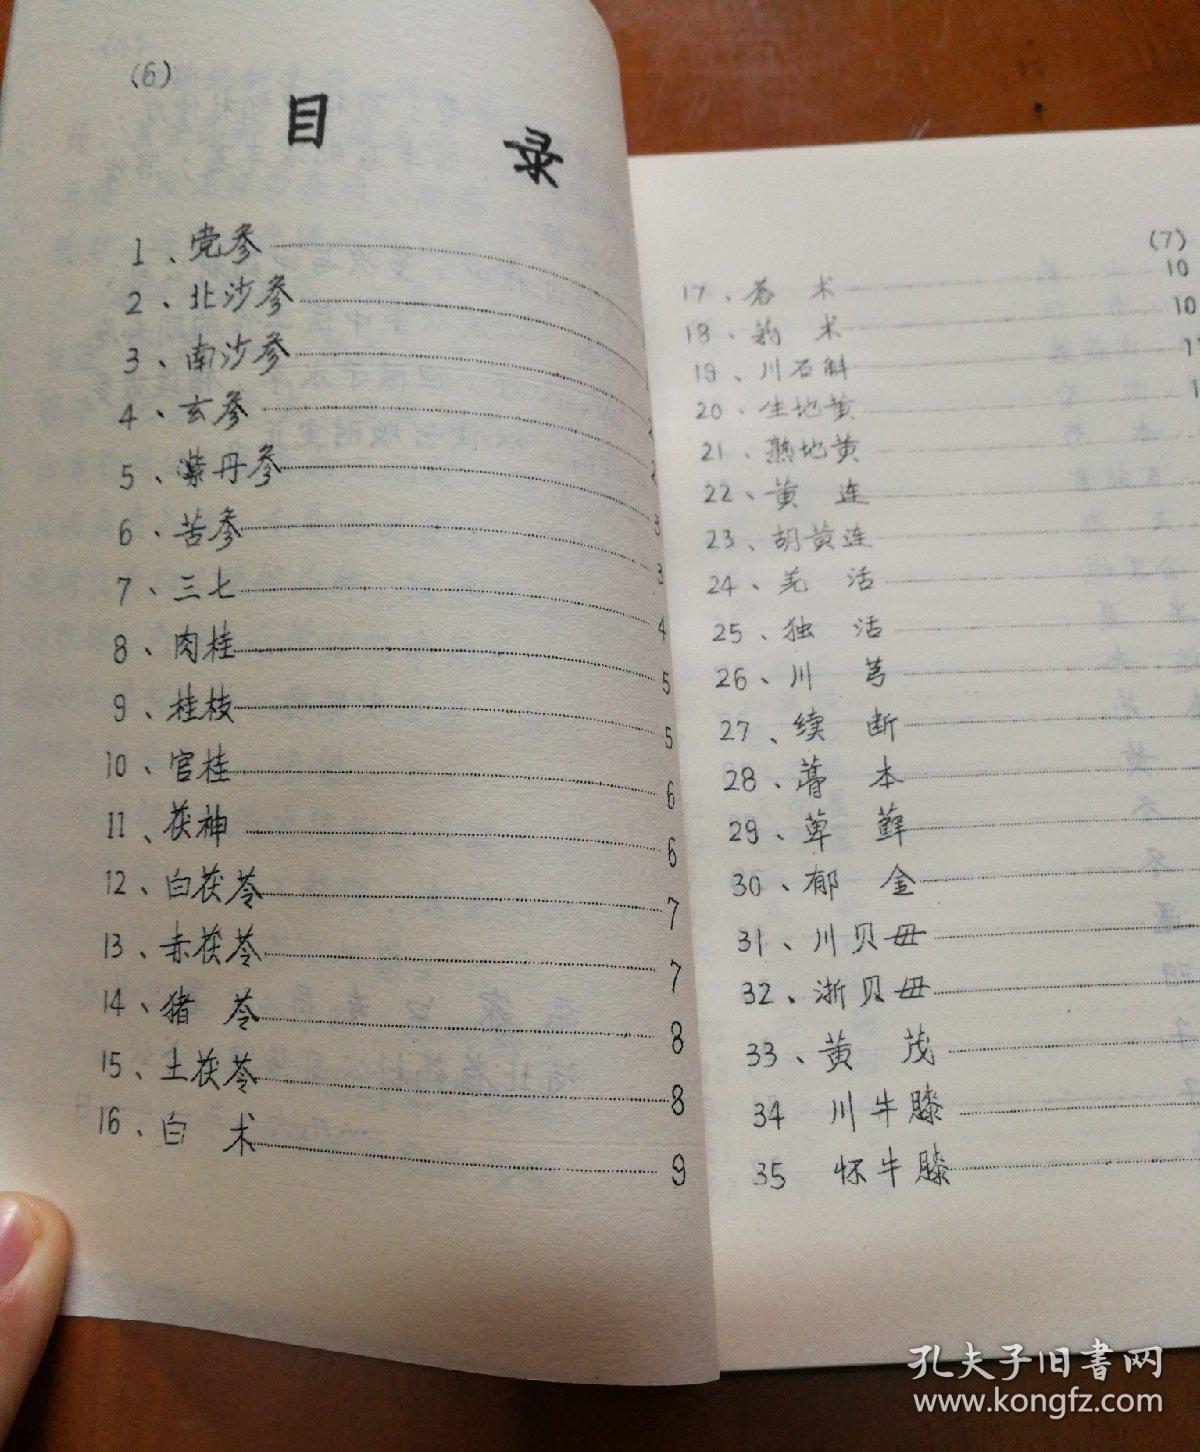 (6)
目 录
1、党参
2、北沙参
3、南沙参
4、玄参
5、紫丹参 3
6、苦参 3
7、三七 4
8、肉桂 5
9、桂枝 5
10、官桂 6
11、茯神 6
12、白茯苓 7
13、赤茯苓 7
14、猪 苓 8
15、土茯苓 8
16、白 术 9
(7)
17、苍 术 10
18、莪 术 10
19、川石斛
20、生地黄
21、熟地黄
22、黄 连
23、胡黄连
24、羌 活
25、独 活
26、川 芎
27、续 断
28、藁 本
29、萆 薢
30、郁 金
31、川贝母
32、浙贝母
33、黄 茂
34 川牛膝
35 怀牛膝
孔夫子旧書网
www.kongfz.com